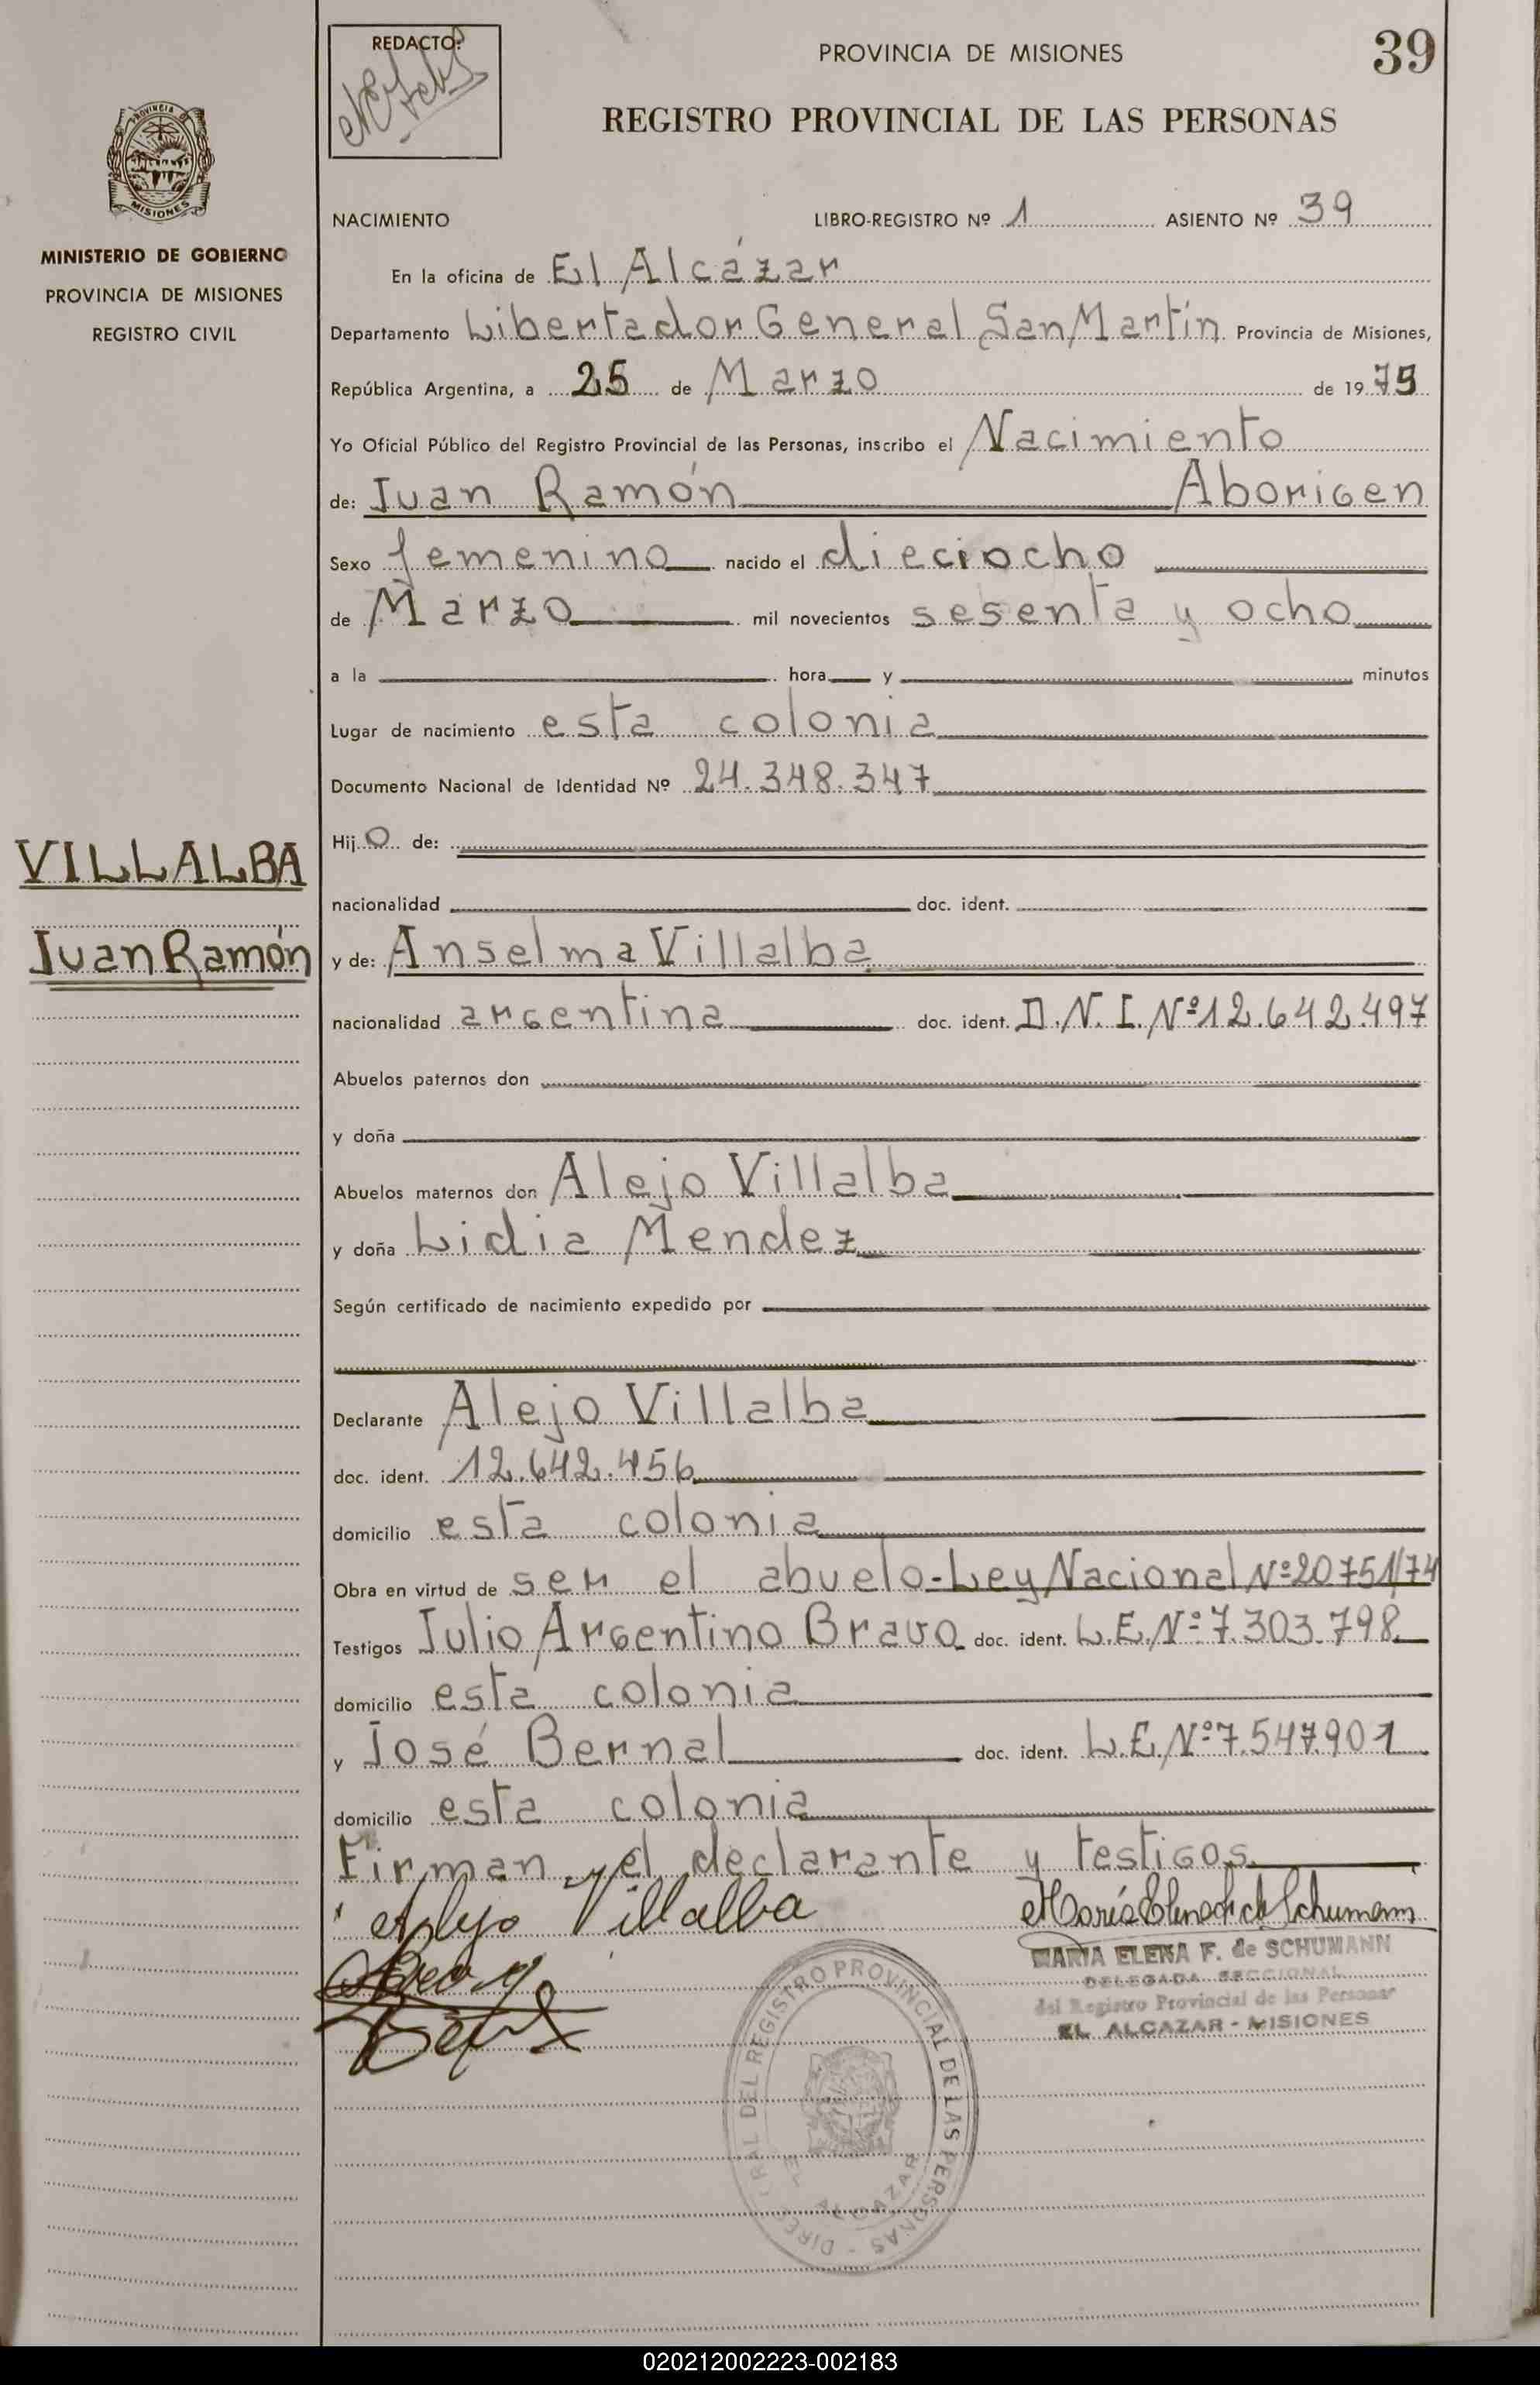 REDACTO:
PROVINCIA DE MISIONES
39
REGISTRO PROVINCIAL DE LAS PERSONAS
PROVINCIA DE
MISIONES
MINISTERIO DE GOBIERNO
PROVINCIA DE MISIONES
REGISTRO CIVIL
NACIMIENTO LIBRO-REGISTRO Nº 1 ASIENTO Nº 39
En la oficina de El Alcázar
Departamento Libertador General San Martín Provincia de Misiones,
República Argentina, a 25 de Marzo de 1975
Yo Oficial Público del Registro Provincial de las Personas, inscribo el Nacimiento
de: Juan Ramón Aborigen
Sexo femenino nacido el dieciocho
de Marzo mil novecientos sesenta y ocho
a la hora y minutos
Lugar de nacimiento esta colonia
Documento Nacional de Identidad Nº 24.348.347
Hijo de:
VILLALBA
nacionalidad doc. ident.
Juan Ramón
y de: Anselma Villalba
nacionalidad argentina doc. ident. D.N.I. Nº 12.642.497
Abuelos paternos don
y doña
Abuelos maternos don Alejo Villalba
y doña Lidia Mendez
Según certificado de nacimiento expedido por
Declarante Alejo Villalba
doc. ident. 12.642.456
domicilio esta colonia
Obra en virtud de ser el abuelo-Ley Nacional Nº 20751/74
Testigos Julio Argentino Bravo doc. ident. L.E. Nº 7.303.798
domicilio esta colonia
y José Bernal doc. ident. L.E. Nº 7.547.901
domicilio esta colonia
Firman, el declarante y testigos
Alejo Villalba
MARIA ELENA F. de SCHUMANN
DELEGADA SECCIONAL
del Registro Provincial de las Personas
EL ALCAZAR - MISIONES
DEL REGISTRO PROVINCIAL DE LAS PERSONAS
EL ALCAZAR
020212002223-002183